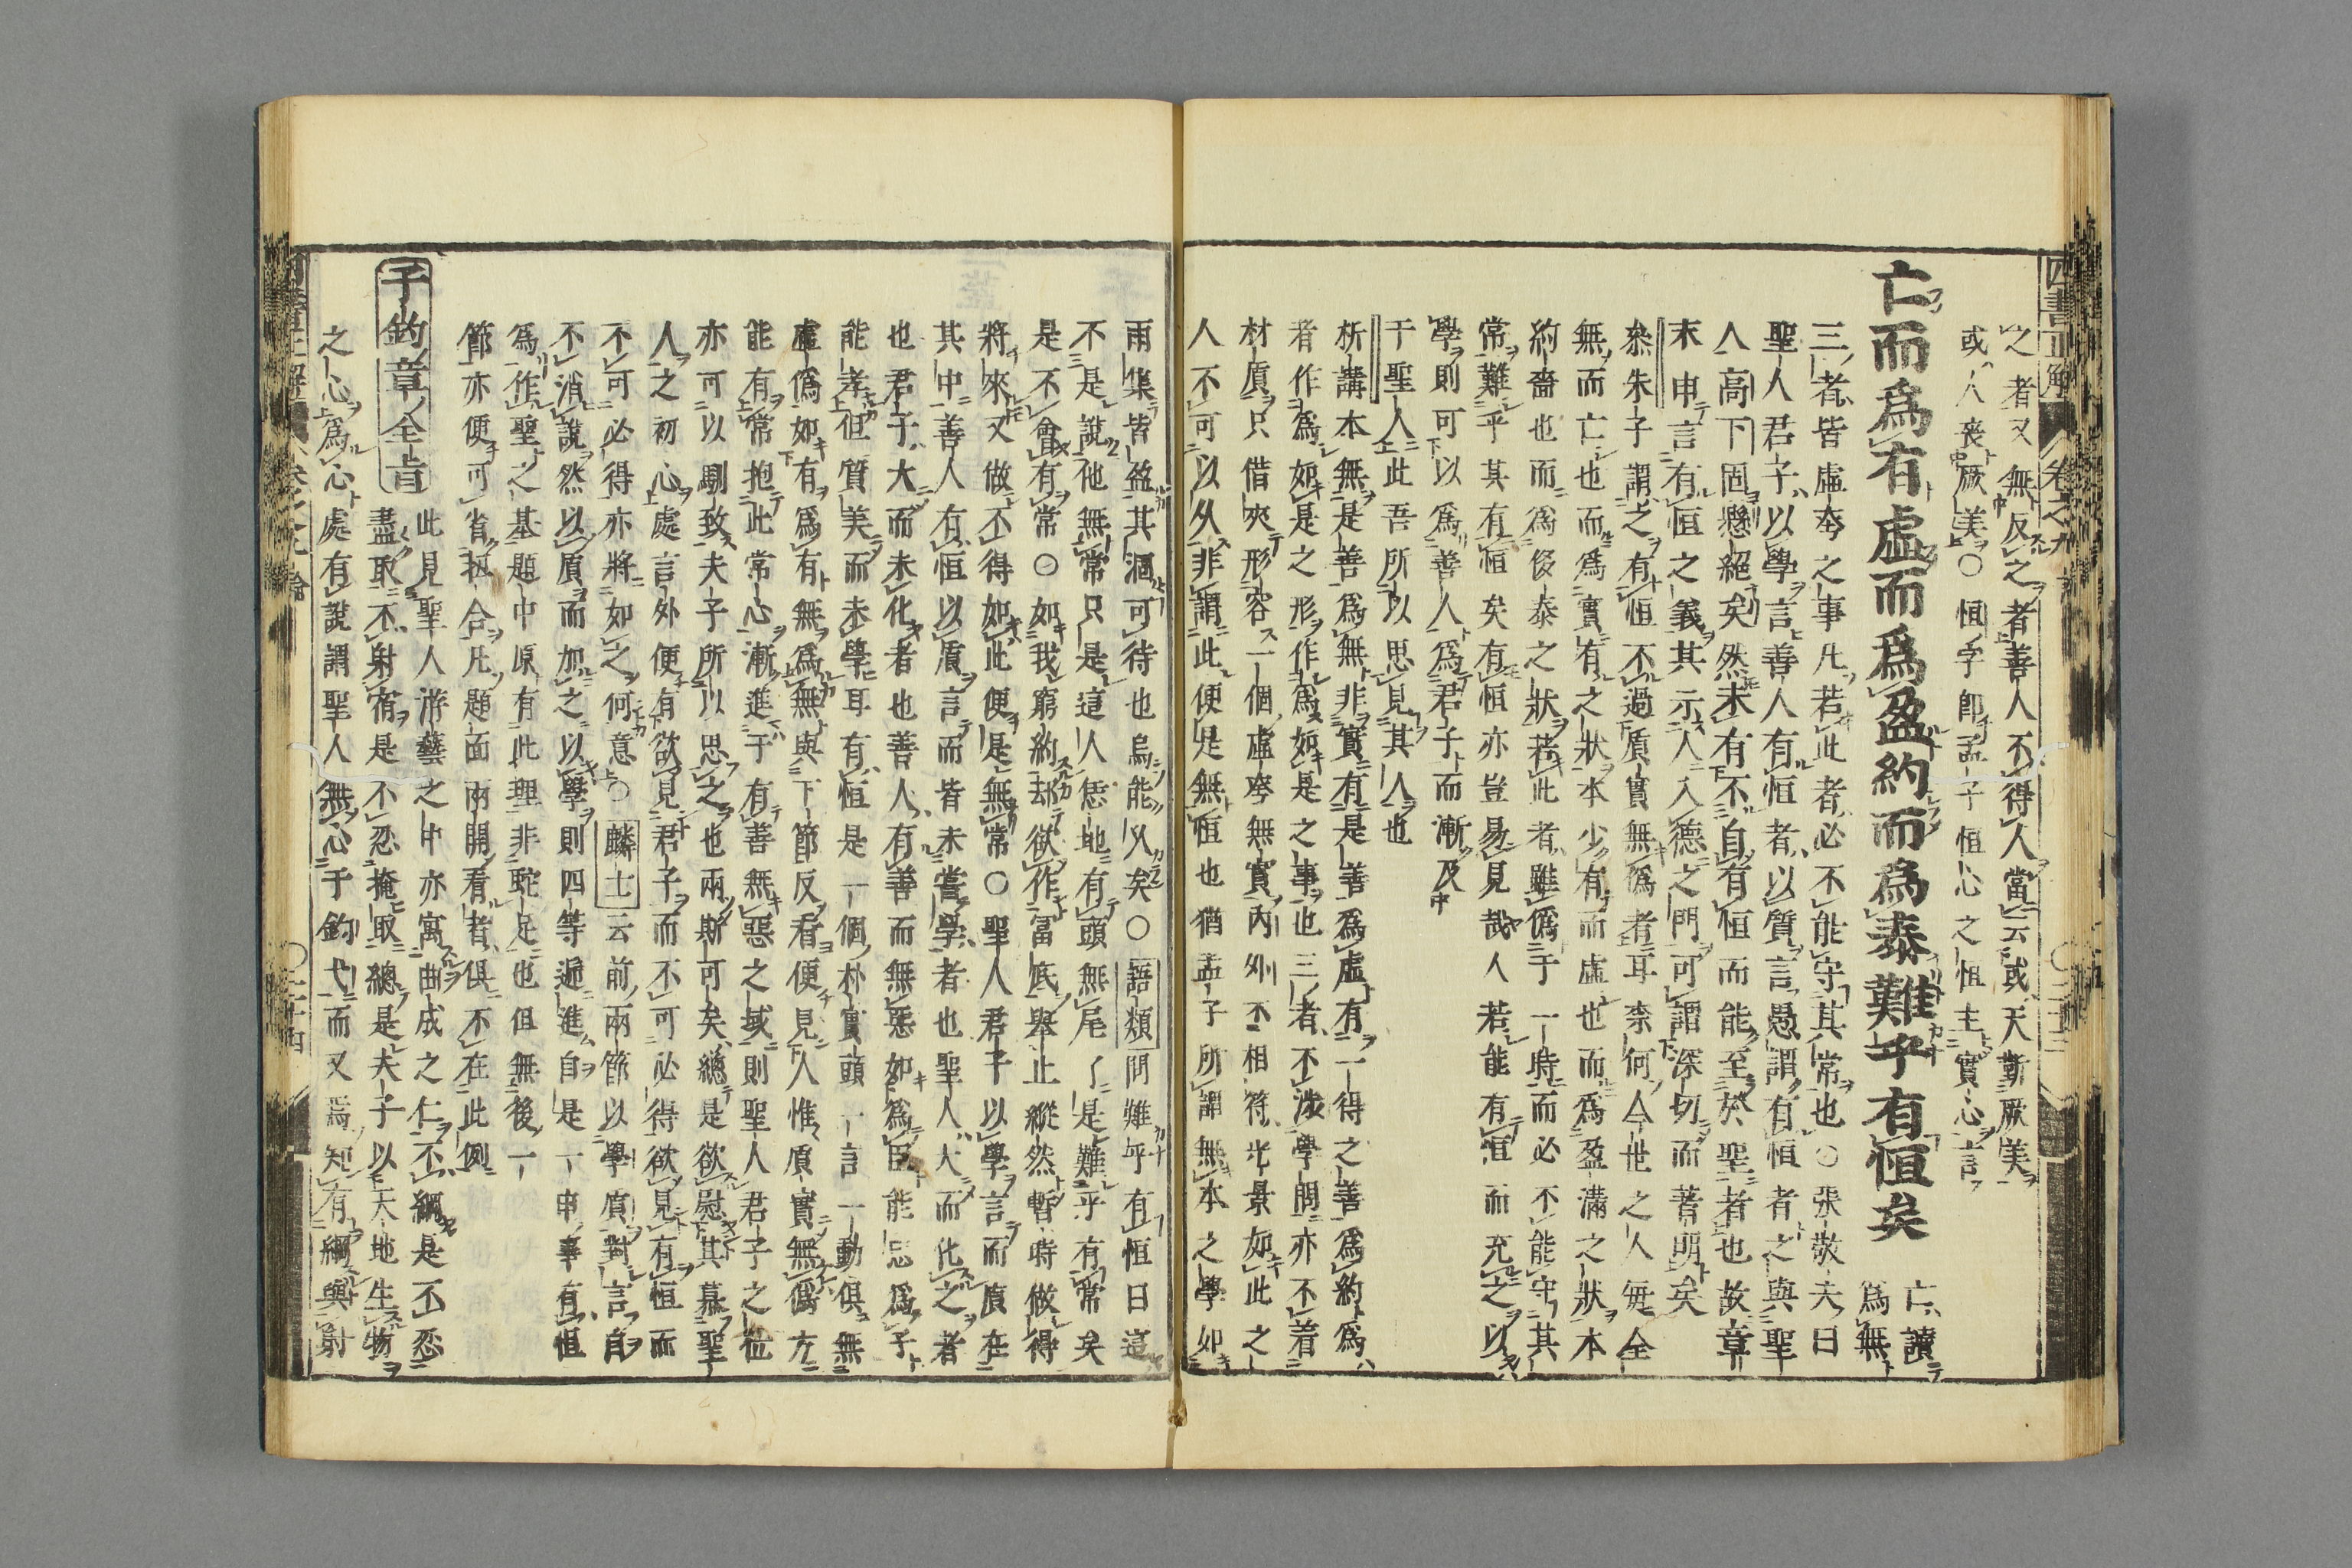 四書正解 卷之九
之者又無反之者善人不得人當云或天斷厥美
或人喪厥美○恒字即孟子恒心之恒主實心言
亡而爲有虛而爲盈約而爲泰難乎有恒矣
亡讀
爲無
三者皆虛夸之事凡若此者必不能守其常也○張敬夫曰
聖人君子以學言善人有恒者以質言愚謂有恒者之與聖
人高下固懸絕矣然未有不自有恒而能至於聖者也故章
末申言有恒之義其示人入德之門可謂深切而著明矣
叅朱子謂之有恒不過質實無僞者耳柰何今世之人每全
無而亡也而爲實有之狀本少有而虛也而爲盈滿之狀本
約嗇也而爲侈泰之狀若此者雖僞于一時而必不能守其
常難乎其有恒矣有恒亦豈易見哉人若能有恒而充之以
學則可以爲善人爲君子而漸及
于聖人此吾所以思見其人也
析講本無是善爲無非實有是善爲虛有一得之善爲約爲
者作爲如是之形作爲如是之事也三者不涉學問亦不着
材質只借夾形容一個虛夸無實內外不相符光景如此之
人不可以久非謂此便是無恒也猶孟子所謂無本之學如
雨集皆盈其涸可待也烏能久矣○語類問難乎有恒曰這
不是說他無常只是這人恁地有頭無尾了是難乎有常矣
是不會有常○如我窮約却欲作富底舉止縱然暫時做得
將來又做不得如此便是無常○聖人君子以學言而質在
其中善人有恒以質言而皆未嘗學者也聖人大而化之者
也君子大而未化者也善人有善而無惡如爲臣能忠爲子
能孝但質美而未學耳有恒是一個朴實頭一言一動俱無
虛僞如有爲有無爲無與下節反看便見人惟質實無僞方
能有常抱此常心漸進于有善無惡之域則聖人君子之位
亦可以馴致夫子所以思之也兩斯可矣總是欲慰其慕聖
人之初心處言外便有欲見君子而不可必得欲見有恒而
不可必得亦將如之何意○麟士云前兩節以學質對言自
不消說然以質而加之以學則四等遞進自是一串事有恒
爲作聖之基題中原有此理非駝足也但無後一
節亦便可省扭合凡題面兩開看者俱不在此例
子釣章全旨
此見聖人游藝之中亦寓曲成之仁不綱是不忍
盡取不射宿是不忍掩取總是夫子以天地生物
之心爲心處有說謂聖人無心于釣弋而又焉知有綱與射